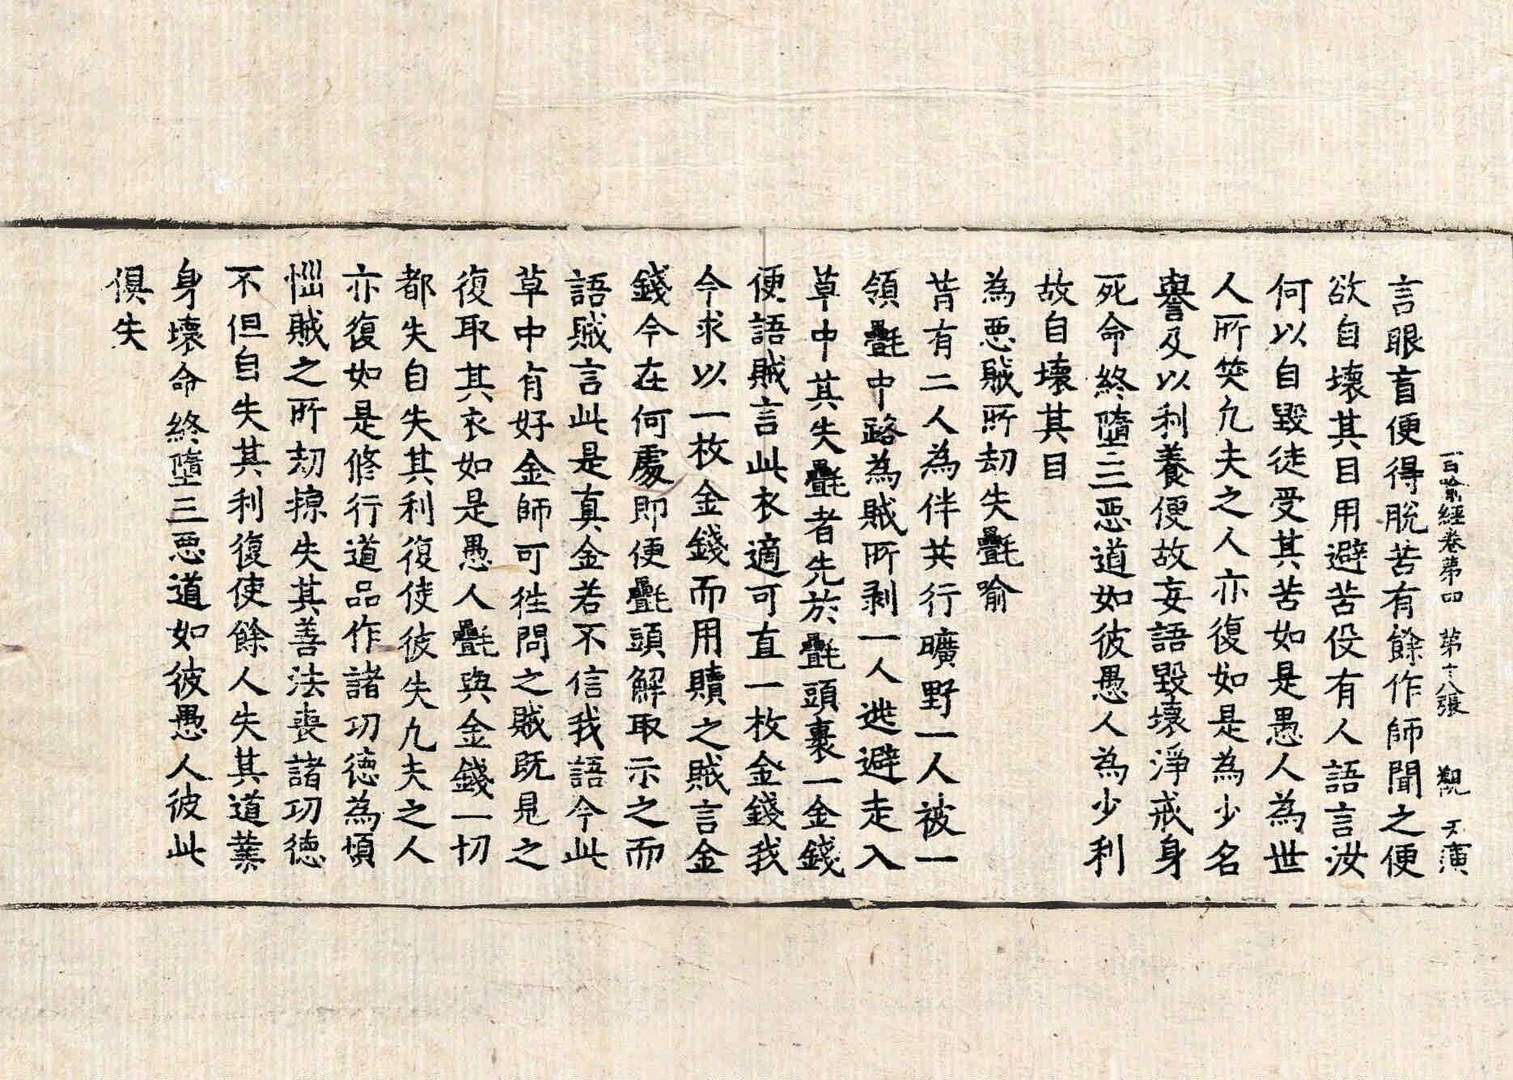 百喻經卷第四 第十八張 觀 天演
言眼盲便得脫苦有餘作師聞之便
欲自壞其目用避苦役有人語言汝
何以自毀徒受其苦如是愚人為世
人所笑凡夫之人亦復如是為少名
譽及以利養便故妄語毀壞淨戒身
死命終墮三惡道如彼愚人為少利
故自壞其目
為惡賊所刧失氎喻
昔有二人為伴共行曠野一人被一
領氎中路為賊所剥一人逃避走入
草中其失氎者先於氎頭裹一金錢
便語賊言此衣適可直一枚金錢我
今求以一枚金錢而用贖之賊言金
錢今在何處即便氎頭解取示之而
語賊言此是真金若不信我語今此
草中有好金師可往問之賊既見之
復取其衣如是愚人氎與金錢一切
都失自失其利復使彼失凡夫之人
亦復如是修行道品作諸功德為煩
惱賊之所刧掠失其善法喪諸功德
不但自失其利復使餘人失其道業
身壞命終墮三惡道如彼愚人彼此
俱失